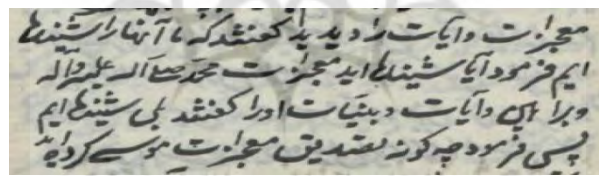 معجزات و آیات را دیدید گفتند که ما آنها را شنیده
ایم فرمود آیا شنیده اید معجزات محمد صلی الله علیه و آله
و براهین و آیات و بینات او را گفتند بلی شنیده ایم
پس فرمود چه گونه تصدیق معجزات موسی کرده اید